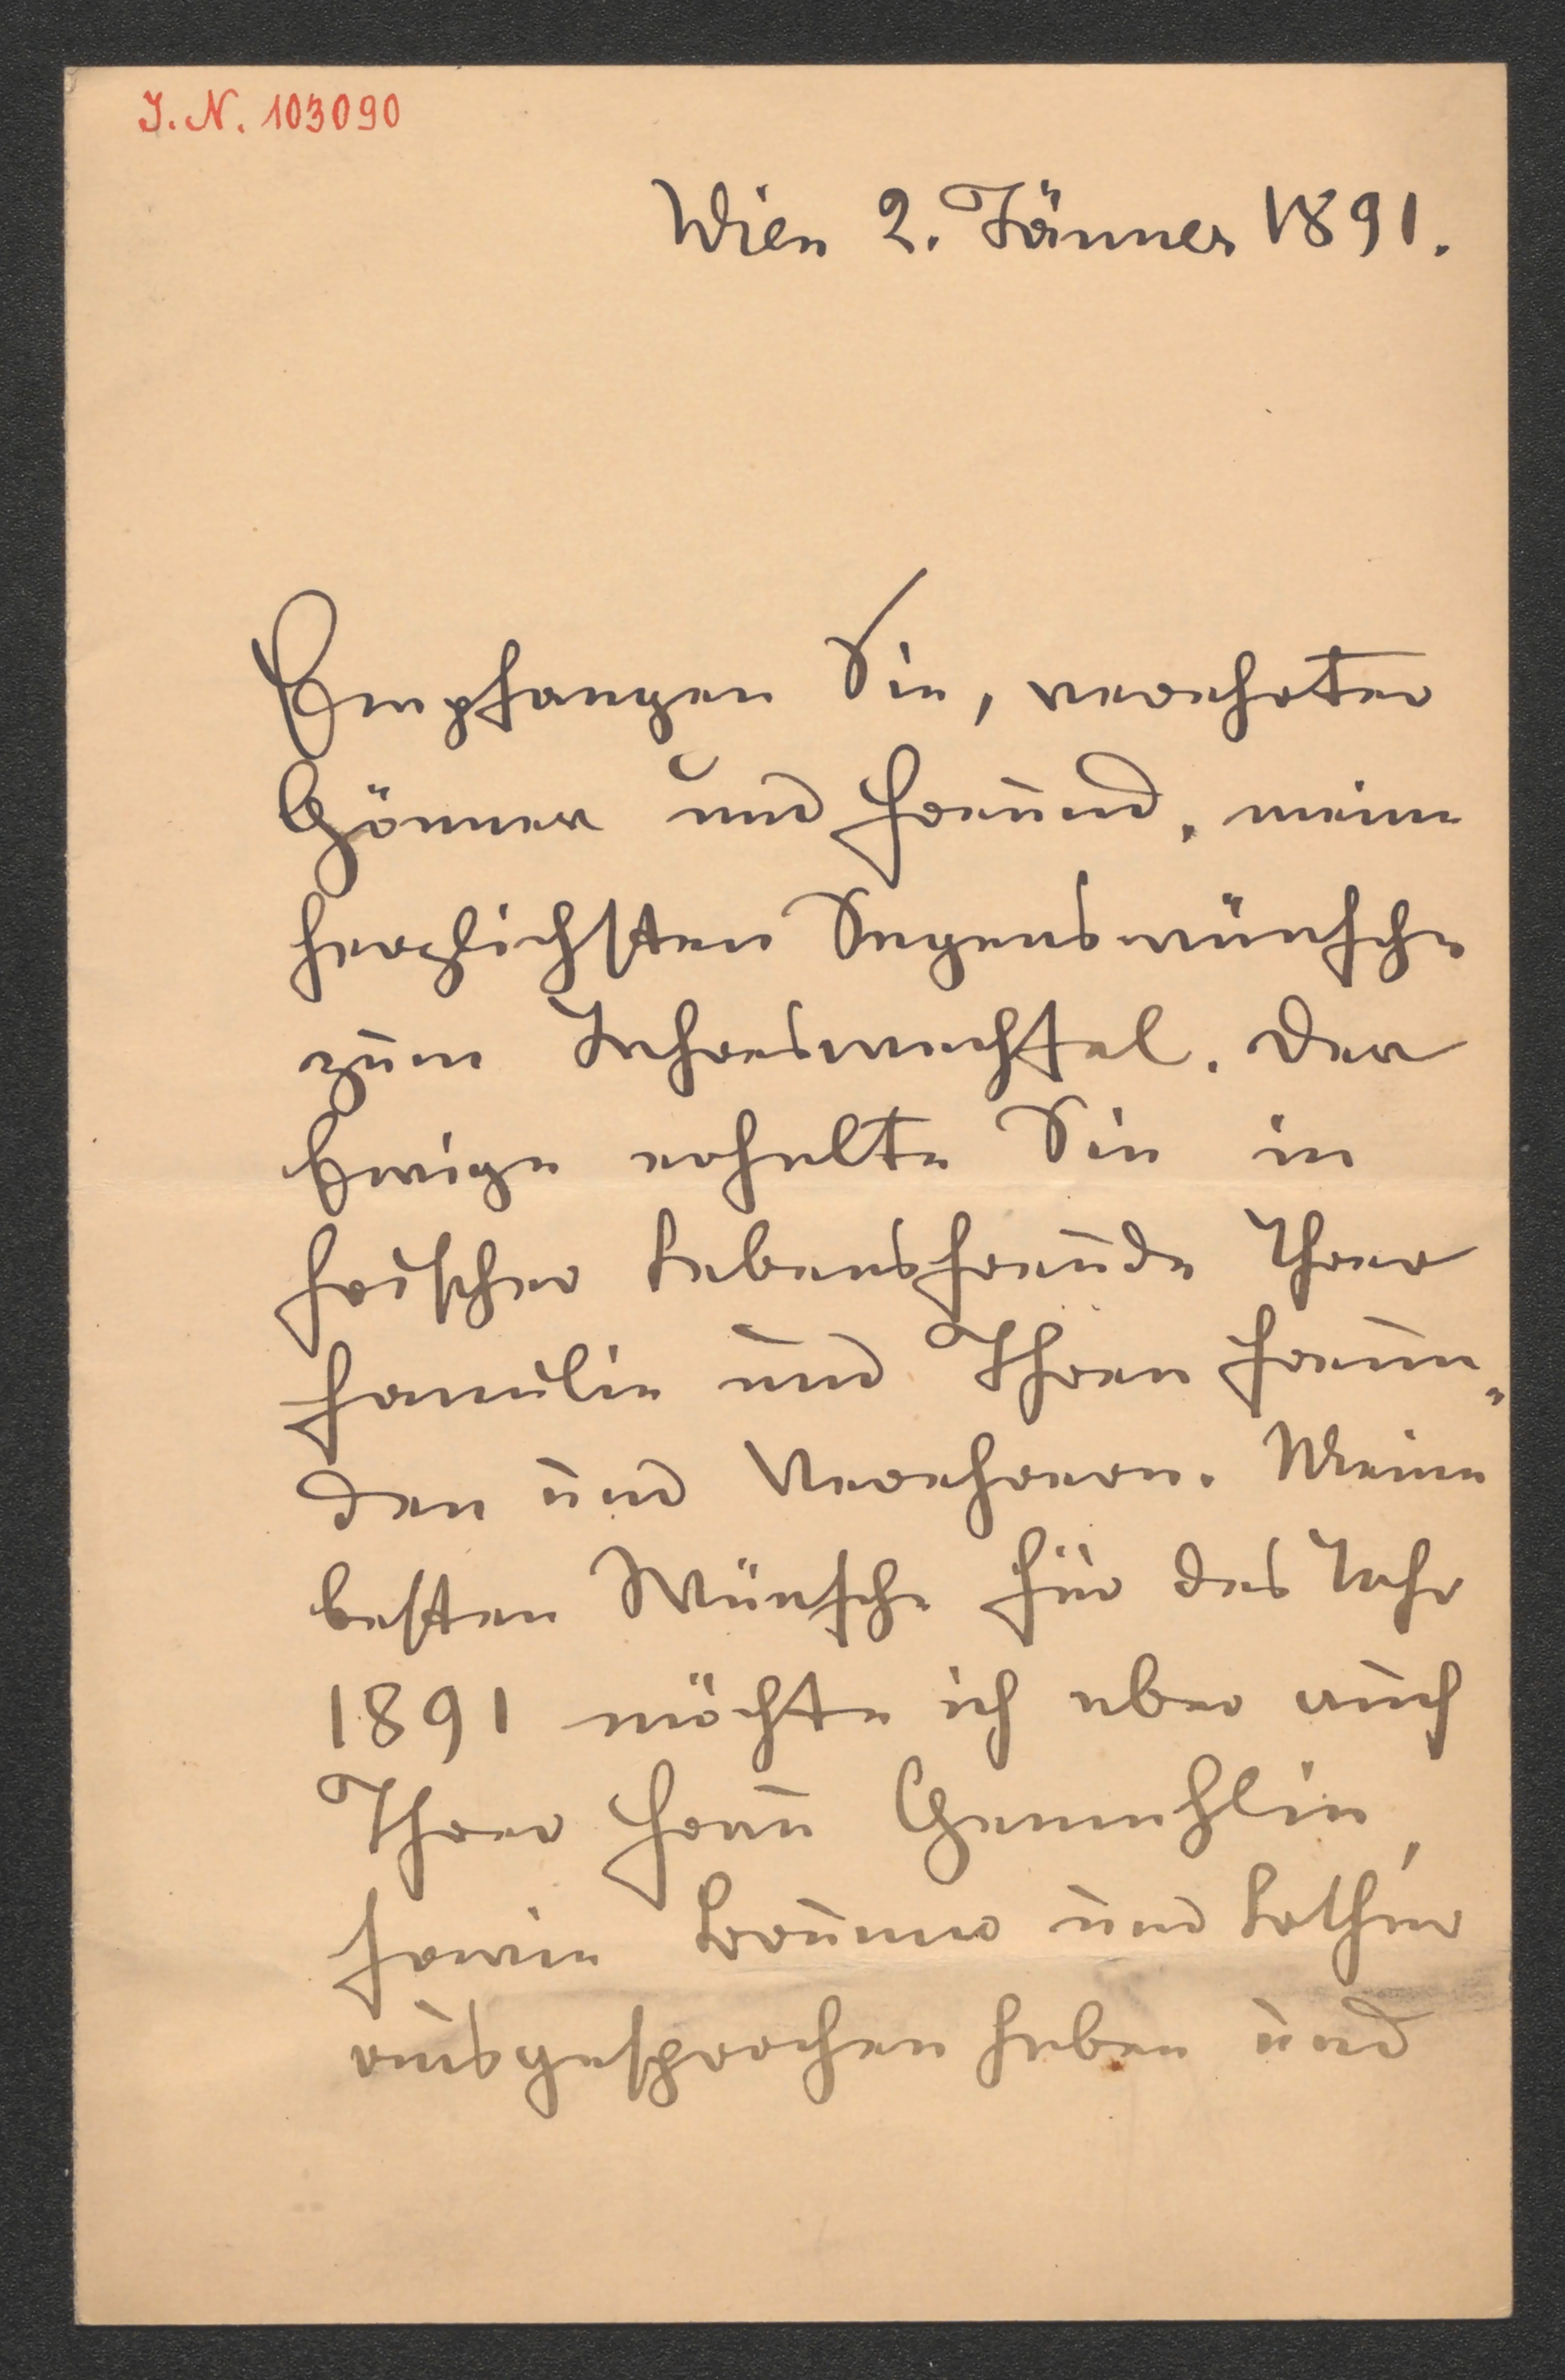 J. N. 103090
Wien 2. Jänner 1891.
Empfangen Sie, verehrter
Gönner und Freund, meine
herzlichsten Segenswünsche
zum Jahreswechsel. Der
Ewige erhalte Sie in
frischer Lebensfreude Ihrer
Familie und Ihren Freun„
den und Verehrern. Meine
besten Wünsche für das Jahr
1891 möchte ich aber auch
Ihrer Frau Gemahlin,
sowie und Lothar
ausgesprochen haben und